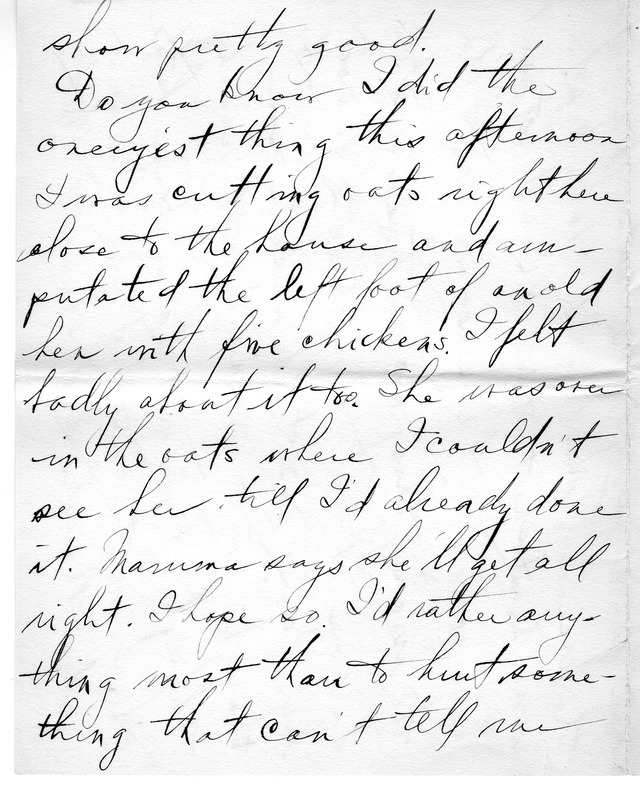 show pretty good.
Do you know I did the
oneryest thing this afternoon
I was cutting oats right here
close to the house and am-
putated the left foot of an old
hen with five chickens. I felt
badly about it too. She was over
in the oats where I couldn't
see her till I'd already done
it. Mamma says she'll get all
right. I hope so. I'd rather any-
thing most than to hurt some-
thing that can't tell me